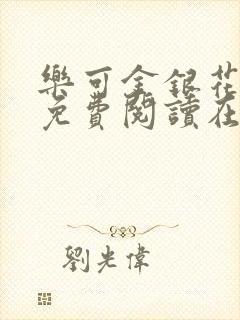 樂可金銀花
免費閱讀在
劉光偉